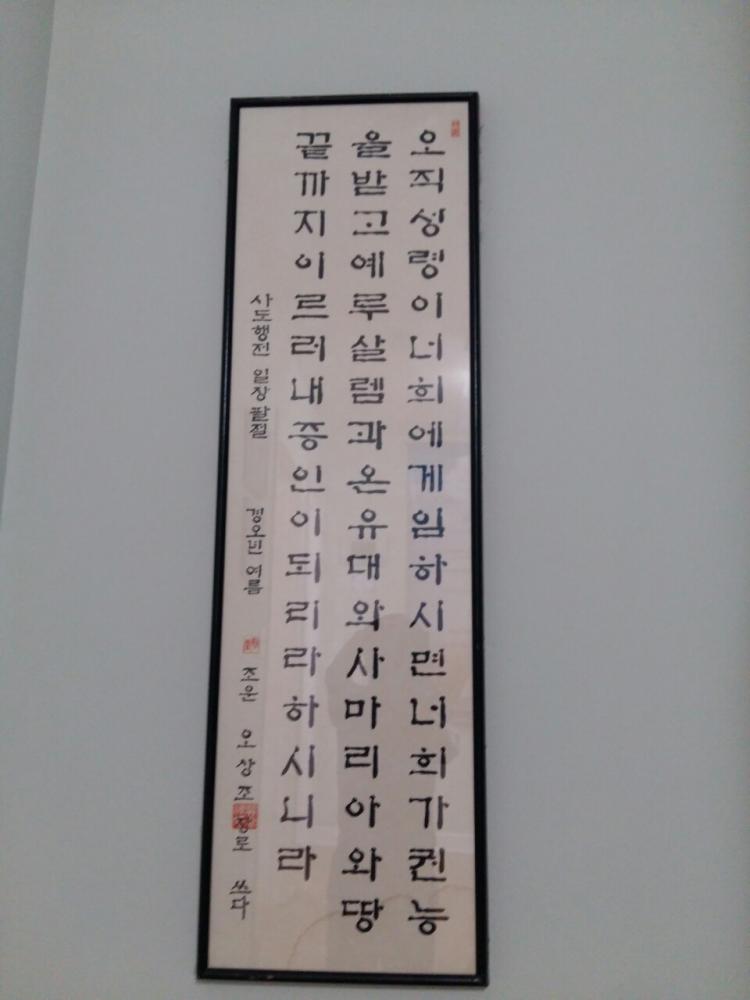 오직성령이너희에게임하시면너희가권능
을받고예루살렘과온유대와사마리아와땅
끝까지이르러내증인이되리라하시니라
사도행전 일장팔절 경오년 여름 조운 오상조 장로 쓰다